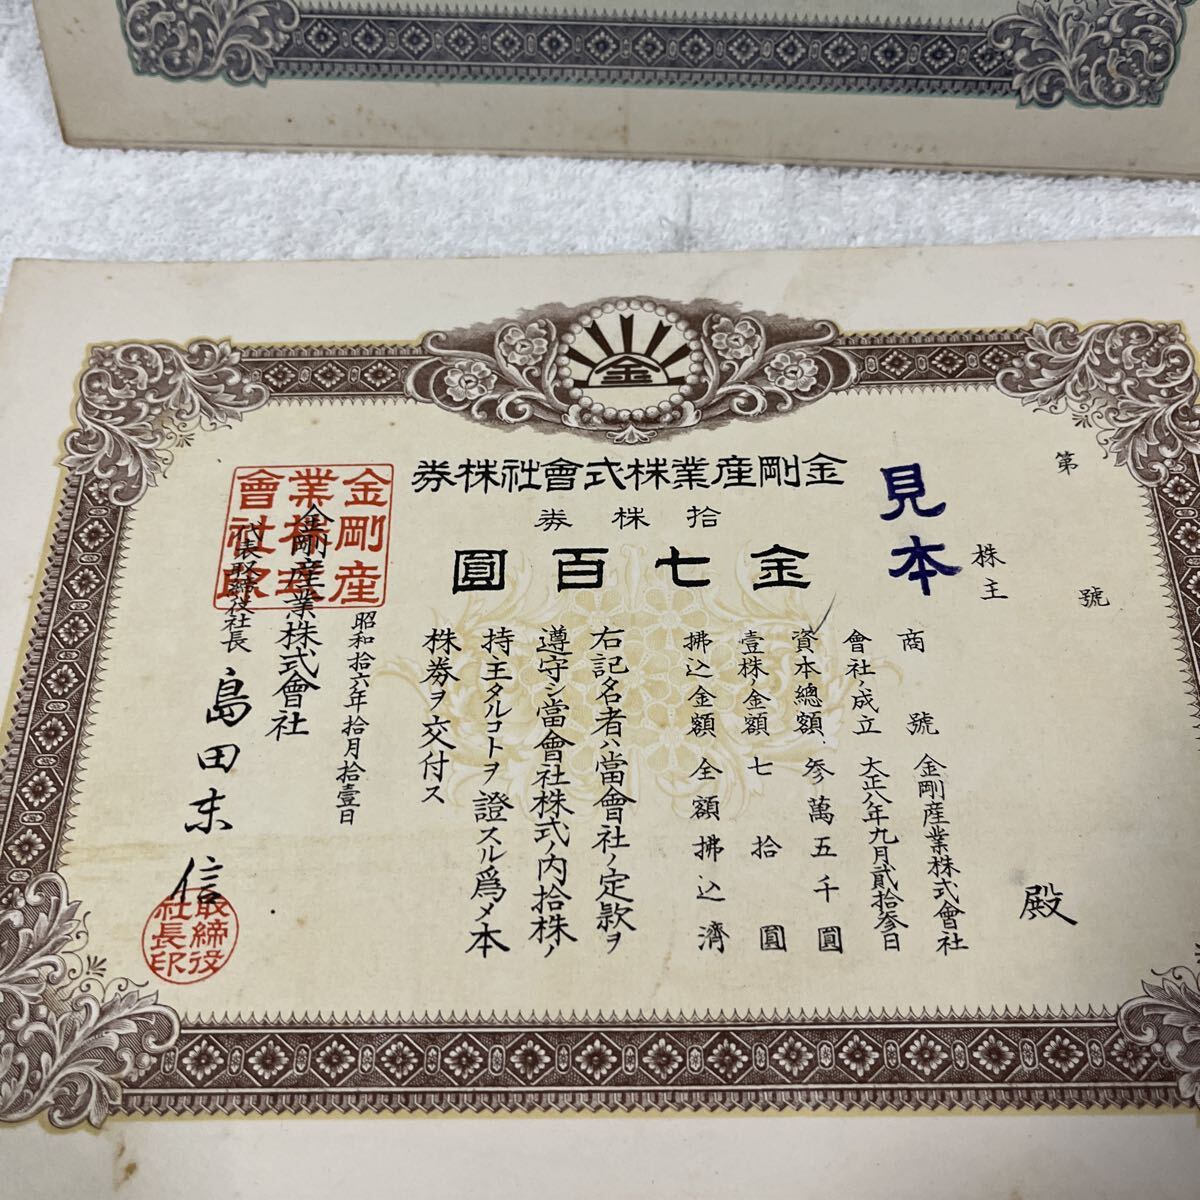 金
金剛産業株式會社株券
拾株券
金七百圓
見本
第 號
株主
殿
商號 金剛産業株式會社
會社ノ成立 大正八年九月貳拾参日
資本總額 参萬五千圓
壹株ノ金額 七拾圓
拂込金額 全額拂込濟
右記名者ハ當會社ノ定款ヲ
遵守シ當會社株式ノ内拾株ノ
持主タルコトヲ證スル爲メ本
株券ヲ交付ス
昭和拾六年拾月拾壹日
金剛産業株式會社
代表取締役社長 島田末信
金剛産
業株式
會社印
取締役
社長印